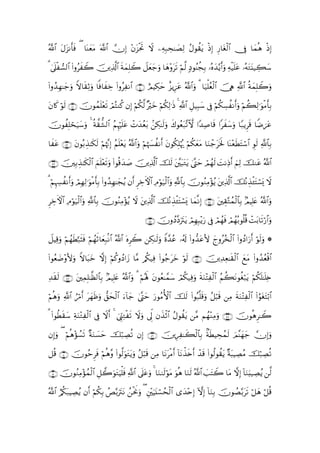 هُمَا فِي الْغَارِ إِذْ يَقُولُ لِصَاحِبِهِ لَا تَحْزَنْ إِنَّ اللَّهَ مَعَنَا فَأَنْزَلَ اللَّهُ
سَكِينَتَهُ عَلَيْهِ وَأَيَّدَهُ بِجُنُودٍ لَمْ تَرَوْهَا وَجَعَلَ كَلِمَةَ الَّذِينَ كَفَرُوا السُّفْلَى
وَكَلِمَةُ اللَّهِ هِيَ الْعُلْيَا وَاللَّهُ عَزِيزٌ حَكِيمٌ ۝ انْفِرُوا خِفَافًا وَثِقَالًا وَجَاهِدُوا
بِأَمْوَالِكُمْ وَأَنْفُسِكُمْ فِي سَبِيلِ اللَّهِ ذَلِكُمْ خَيْرٌ لَكُمْ إِنْ كُنْتُمْ تَعْلَمُونَ ۝ لَوْ كَانَ
عَرَضًا قَرِيبًا وَسَفَرًا قَاصِدًا لَاتَّبَعُوكَ وَلَكِنْ بَعُدَتْ عَلَيْهِمُ الشُّقَّةُ وَسَيَحْلِفُونَ
بِاللَّهِ لَوِ اسْتَطَعْنَا لَخَرَجْنَا مَعَكُمْ يُهْلِكُونَ أَنْفُسَهُمْ وَاللَّهُ يَعْلَمُ إِنَّهُمْ لَكَاذِبُونَ ۝ عَفَا
اللَّهُ عَنْكَ لِمَ أَذِنْتَ لَهُمْ حَتَّى يَتَبَيَّنَ لَكَ الَّذِينَ صَدَقُوا وَتَعْلَمَ الْكَاذِبِينَ ۝
لَا يَسْتَأْذِنُكَ الَّذِينَ يُؤْمِنُونَ بِاللَّهِ وَالْيَوْمِ الْآخِرِ أَنْ يُجَاهِدُوا بِأَمْوَالِهِمْ وَأَنْفُسِهِمْ
وَاللَّهُ عَلِيمٌ بِالْمُتَّقِينَ ۝ إِنَّمَا يَسْتَأْذِنُكَ الَّذِينَ لَا يُؤْمِنُونَ بِاللَّهِ وَالْيَوْمِ الْآخِرِ
وَارْتَابَتْ قُلُوبُهُمْ فَهُمْ فِي رَيْبِهِمْ يَتَرَدَّدُونَ ۝
۞ وَلَوْ أَرَادُوا الْخُرُوجَ لَأَعَدُّوا لَهُ عُدَّةً وَلَكِنْ كَرِهَ اللَّهُ انْبِعَاثَهُمْ فَثَبَّطَهُمْ وَقِيلَ
اقْعُدُوا مَعَ الْقَاعِدِينَ ۝ لَوْ خَرَجُوا فِيكُمْ مَا زَادُوكُمْ إِلَّا خَبَالًا وَلَأَوْضَعُوا
خِلَالَكُمْ يَبْغُونَكُمُ الْفِتْنَةَ وَفِيكُمْ سَمَّاعُونَ لَهُمْ وَاللَّهُ عَلِيمٌ بِالظَّالِمِينَ ۝ لَقَدِ
ابْتَغَوُا الْفِتْنَةَ مِنْ قَبْلُ وَقَلَّبُوا لَكَ الْأُمُورَ حَتَّى جَاءَ الْحَقُّ وَظَهَرَ أَمْرُ اللَّهِ وَهُمْ
كَارِهُونَ ۝ وَمِنْهُمْ مَنْ يَقُولُ ائْذَنْ لِي وَلَا تَفْتِنِّي أَلَا فِي الْفِتْنَةِ سَقَطُوا
وَإِنَّ جَهَنَّمَ لَمُحِيطَةٌ بِالْكَافِرِينَ ۝ إِنْ تُصِبْكَ حَسَنَةٌ تَسُؤْهُمْ وَإِنْ
تُصِبْكَ مُصِيبَةٌ يَقُولُوا قَدْ أَخَذْنَا أَمْرَنَا مِنْ قَبْلُ وَيَتَوَلَّوْا وَهُمْ فَرِحُونَ ۝ قُلْ
لَنْ يُصِيبَنَا إِلَّا مَا كَتَبَ اللَّهُ لَنَا هُوَ مَوْلَانَا وَعَلَى اللَّهِ فَلْيَتَوَكَّلِ الْمُؤْمِنُونَ ۝
قُلْ هَلْ تَرَبَّصُونَ بِنَا إِلَّا إِحْدَى الْحُسْنَيَيْنِ وَنَحْنُ نَتَرَبَّصُ بِكُمْ أَنْ يُصِيبَكُمُ اللَّهُ